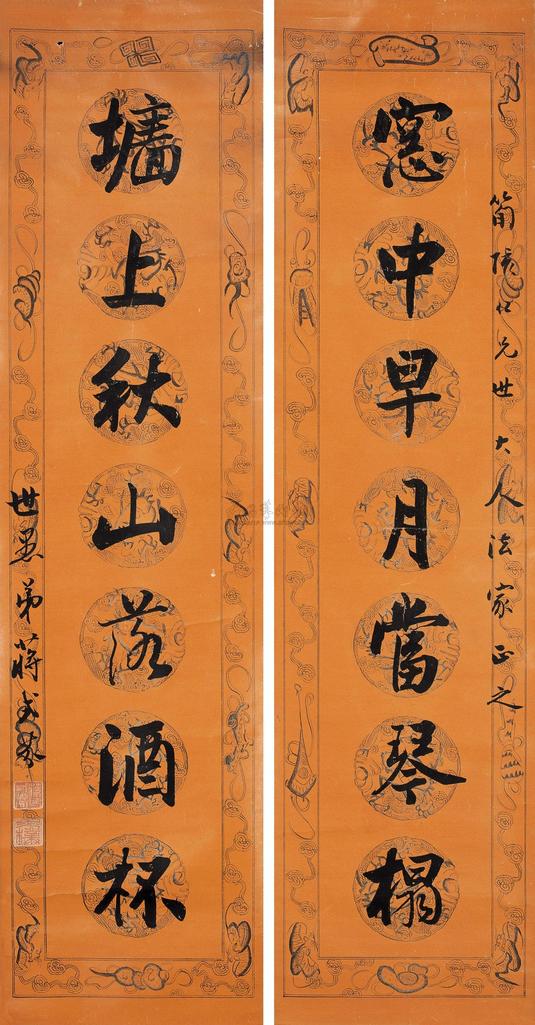 窓中早月當琴榻
世大人法家正之
墻上秋山落酒杯
世愚弟蔣式芬